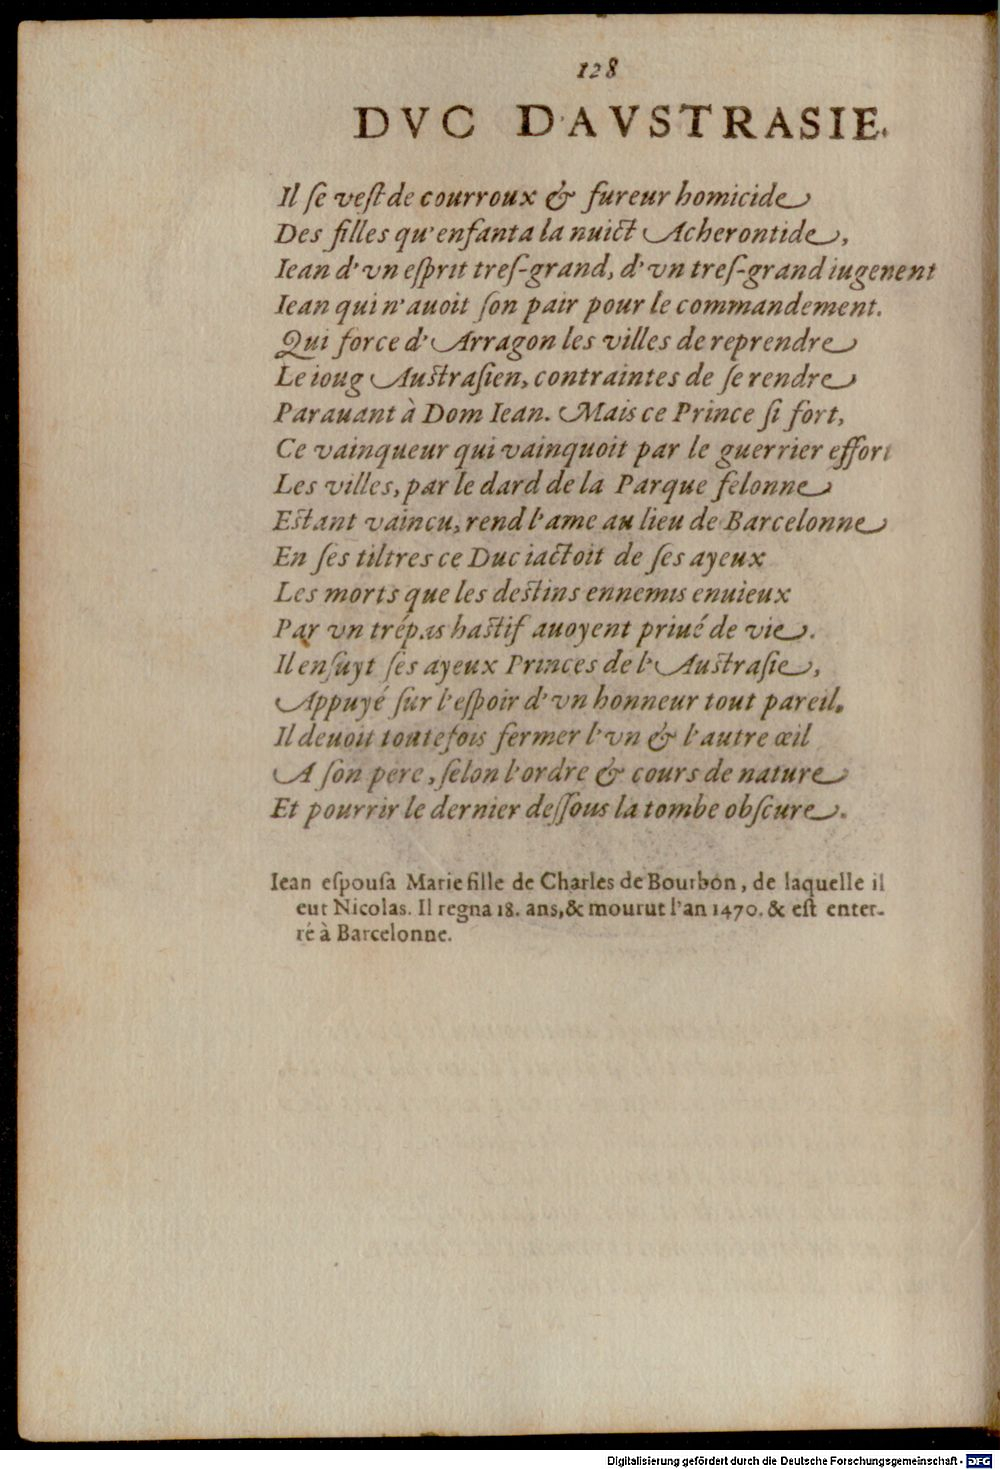 128
DVC D'AVSTRASIE.
Il ſe veſt de courroux & fureur homicide
Des filles qu'enfanta la nuict Acherontide,
Iean d'vn eſprit treſ-grand, d'vn treſ-grand iugenent
Iean qui n'auoit ſon pair pour le commandement.
Qui force d'Arragon les villes de reprendre
Le ioug Auſtraſien, contraintes de ſe rendre
Parauant à Dom Iean. Mais ce Prince ſi fort,
Ce vainqueur qui vainquoit par le guerrier effort
Les villes, par le dard de la Parque felonne
Eſtant vaincu, rend l'ame au lieu de Barcelonne
En ſes tiltres ce Duc iactoit de ſes ayeux
Les morts que les deſtins ennemis enuieux
Par vn trépas haſtif auoyent priué de vie.
Il enſuyt ſes ayeux Princes de l'Auſtraſie,
Appuyé ſur l'eſpoir d'vn honneur tout pareil.
Il deuoit toutefois fermer l'vn & l'autre œil
A ſon pere, ſelon l'ordre & cours de nature
Et pourrir le dernier deſſous la tombe obſcure.
Iean eſpouſa Marie fille de Charles de Bourbon, de laquelle il
eut Nicolas. Il regna 18. ans, & mourut l'an 1470. & eſt enter-
ré à Barcelonne.
Digitalisierung gefördert durch die Deutsche Forschungsgemeinschaft - DFG